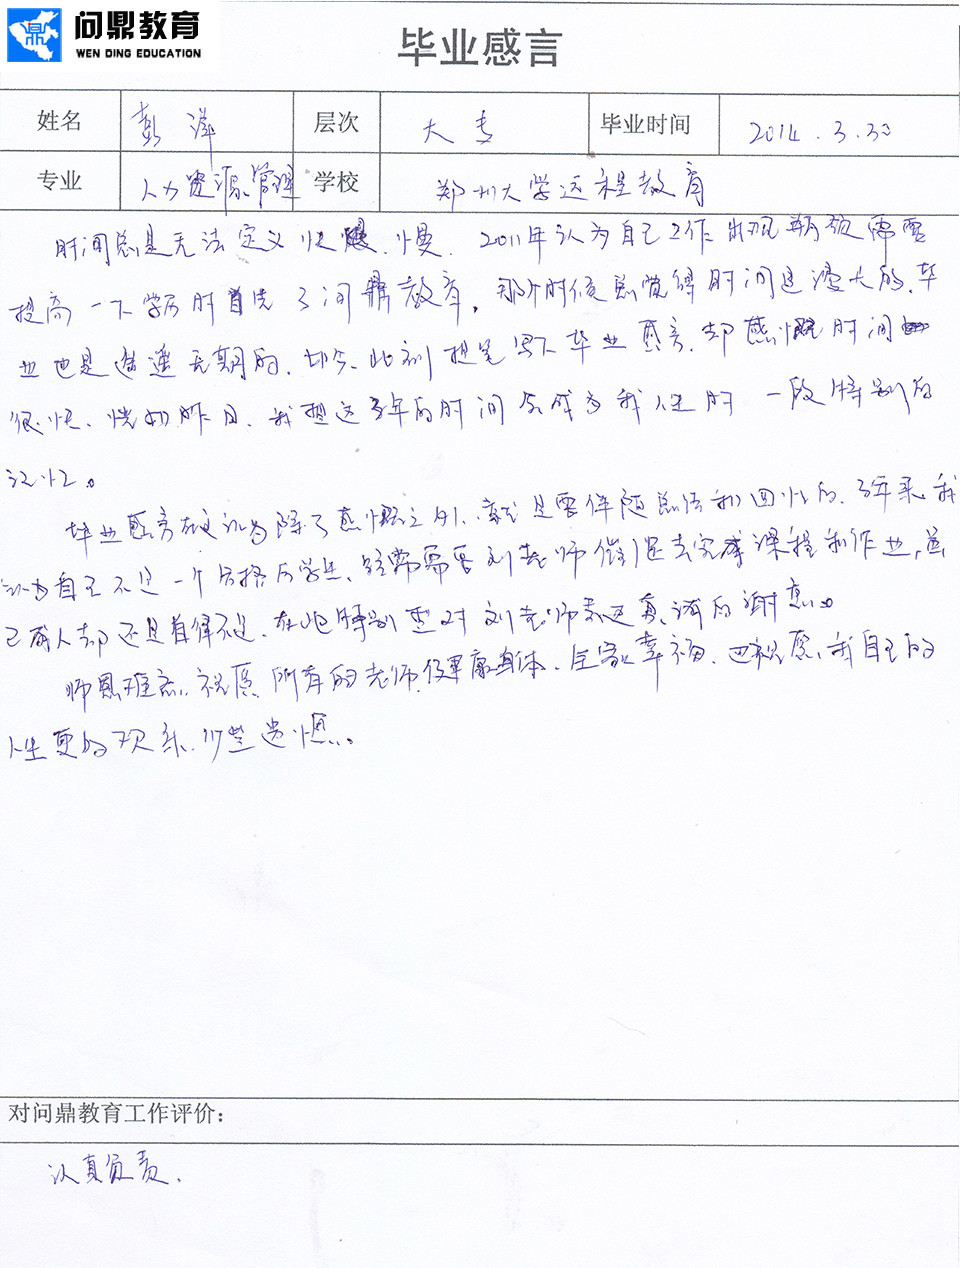 问鼎教育
WEN DING EDUCATION
毕业感言
姓名 彭洋 层次 大专 毕业时间 2014.3.30
专业 人力资源管理 学校 郑州大学远程教育
时间总是无法定义快慢、慢. 2011年认为自己工作出现瓶颈需要
提高一下学历时首选了问鼎教育, 那个时候总觉得时间是漫长的, 毕
业也是遥遥无期的. 如今此刻提笔写下毕业感言, 却感慨时间
很快、恍如昨日. 我想这3年的时间会成为我人生的一段特别的
记忆。
毕业感言在我认为除了感慨之外, 就是要伴随总结和回忆的. 3年来我
认为自己不是一个合格的学生, 经常需要刘老师催促去完成课程和作业,
己成人却还是自律不足. 在此特别要对刘老师表达真诚的谢意。
师恩难忘. 祝愿所有的老师健康身体、全家幸福. 也祝愿我自己的
人生更多欢乐, 少些遗憾。
对问鼎教育工作评价：
认真负责.